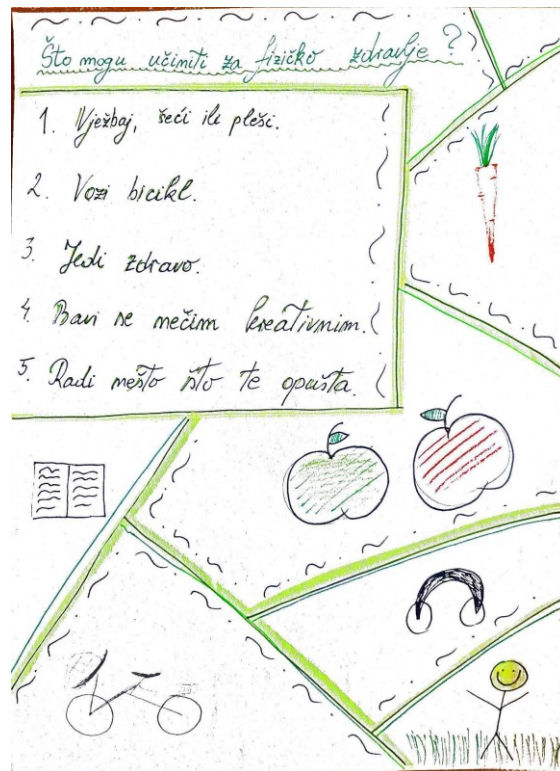 Što mogu učiniti za fizičko zdravlje?
1. Vježbaj, šeći ili pleši.
2. Vozi bicikl.
3. Jedi zdravo.
4. Bavi se nečim kreativnim.
5. Radi nešto što te opušta.